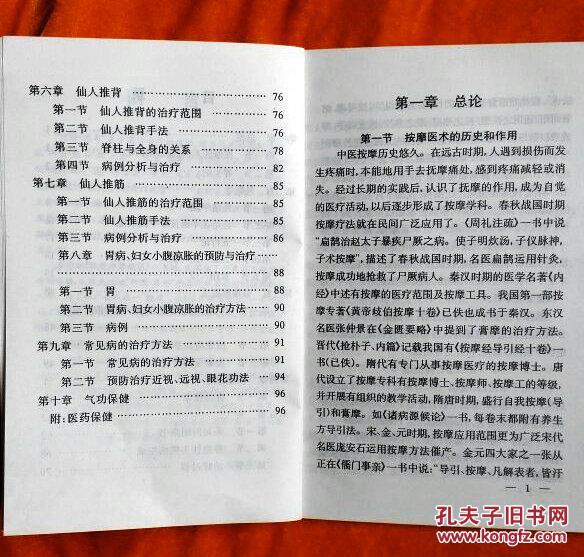 第六章 仙人推背 …………………… 76
第一节 仙人推背的治疗范围 …………… 76
第二节 仙人推背手法 …………………… 76
第三节 脊柱与全身的关系 ……………… 78
第四节 病例分析与治疗 ………………… 82
第七章 仙人推筋 …………………… 85
第一节 仙人推筋的治疗范围 …………… 85
第二节 仙人推筋手法 …………………… 85
第三节 病例分析与治疗 ………………… 86
第八章 胃病、妇女小腹凉胀的预防与治疗 ……
…………………… 88
第一节 胃 …………………… 88
第二节 胃病、妇女小腹凉胀的治疗方法 …… 90
第三节 病例 …………………… 90
第九章 常见病的治疗方法 …………… 91
第一节 常见病的治疗方法 …………… 91
第二节 预防治疗近视、远视、眼花功法 …… 94
第十章 气功保健 …………………… 96
附:医药保健 …………………… 96
第一章 总论
第一节 按摩医术的历史和作用
中医按摩历史悠久。在远古时期,人遇到损伤而发
生疼痛时,本能地用手去抚摩痛处,感到疼痛减轻或消
失。经过长期的实践后,认识了抚摩的作用,成为自觉
的医疗活动,以后逐步形成了按摩学科。春秋战国时期
按摩疗法就在民间广泛应用了。《周礼注疏》一书中说
“扁鹊治赵太子暴疾尸厥之病。使子明炊汤,子仪脉神,
子术按摩”,描述了春秋战国时期,名医扁鹊运用针灸、
按摩成功地抢救了尸厥病人。秦汉时期的医学名著《内
经》中述有按摩的医疗范围及按摩工具。我国第一部按
摩专著《黄帝歧伯按摩十卷》已佚也成书于秦汉。东汉
名医张仲景在《金匮要略》中提到了膏摩的治疗方法。
晋代《抢朴子、内篇》记载我国有《按摩经导引经十卷》一
书(已佚)。隋代有专门从事按摩医疗的按摩博士。唐
代设立了按摩专科有按摩博士、按摩师、按摩工的等级,
并开展有组织的教学活动,隋唐时期,盛行自我按摩(导
引)和膏摩。如《诸病源候论》一书,每卷末都附有养生
方导引法。宋、金、元时期,按摩应用范围更为广泛宋代
名医庞安石运用按摩方法催产。金元四大家之一张从
正在《儒门事亲》一书中说:“导引、按摩、凡解表者,皆汗
— 1 —
孔夫子旧书网
www.kongfz.com